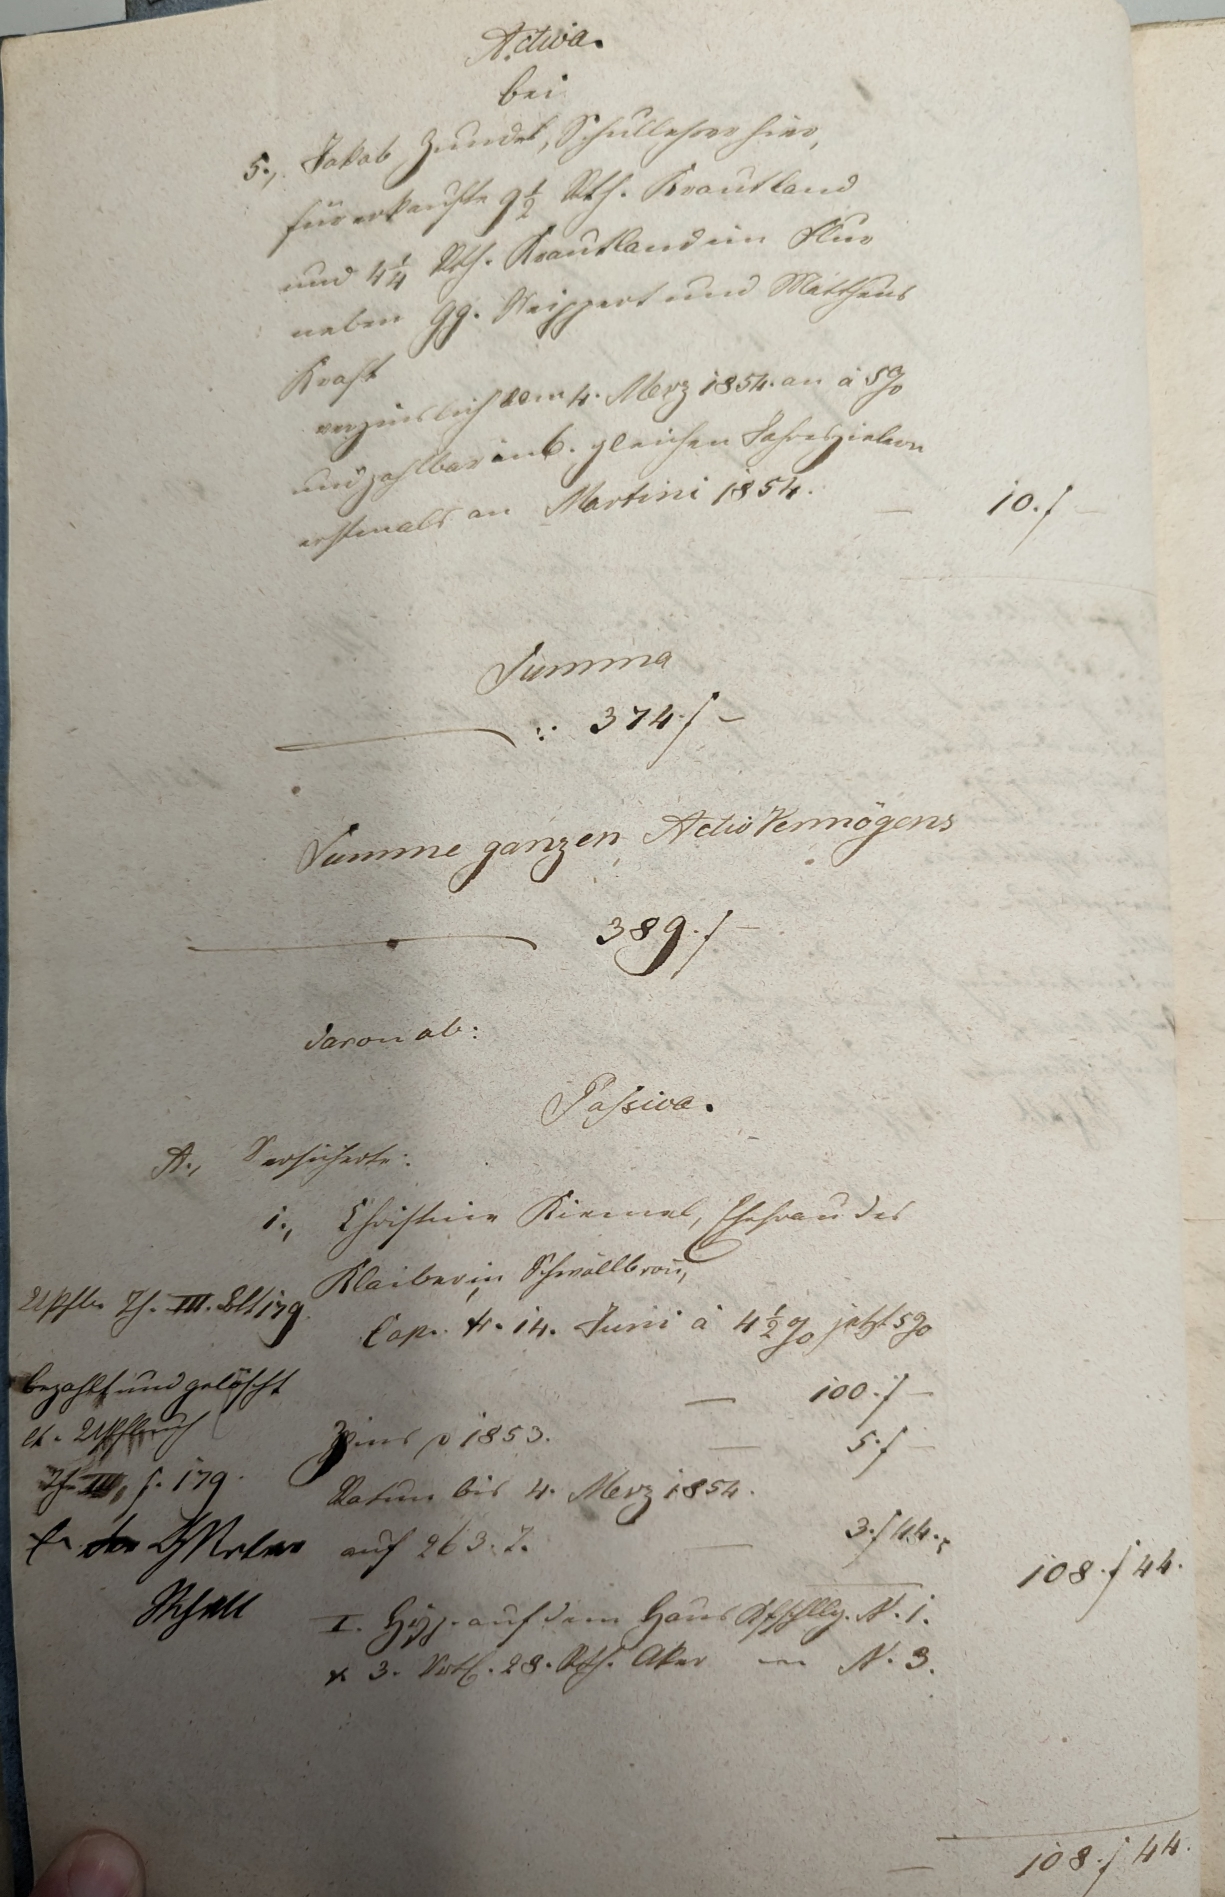 Activa.
bei
5., Jakob Zundel, Schullehrer hier,
für erkaufte 9 1/2 Rth. Krautland
und 4 1/4 Rth. Krautland im Flur
neben Gg. Weippert und Matthäus
Kraft
verzinslich vom 4. Merz 1854. an à 5 %
und zahlbar in 6. gleichen Jahreszielern
erstmals an Martini 1854. — 10. f —
Summa
: 374. f —
Summe ganzen Activ Vermögens
389. f —
davon ab:
Passiva.
A., Versicherte:
1., Christine Kiemel, Ehefrau des
Klaiber in Schwállbronn,
Upfb. Th. III. Blt 179.
Cap. v. 14. Juni à 4 1/2 % jetzt 5 %
— 100. f —
bezahlt und gelöscht
lt. Upfbuch
Th. III, f. 179.
Zins p 1853. — 5. f —
Ratum bis 4. Merz 1854.
auf 263. T. — 3. f 44.
108. f 44.
I. Hyp. auf dem Haus N. 1.
& 3. Vrtl. 28. Rth. Aker — N. 3.
— 108. f 44.